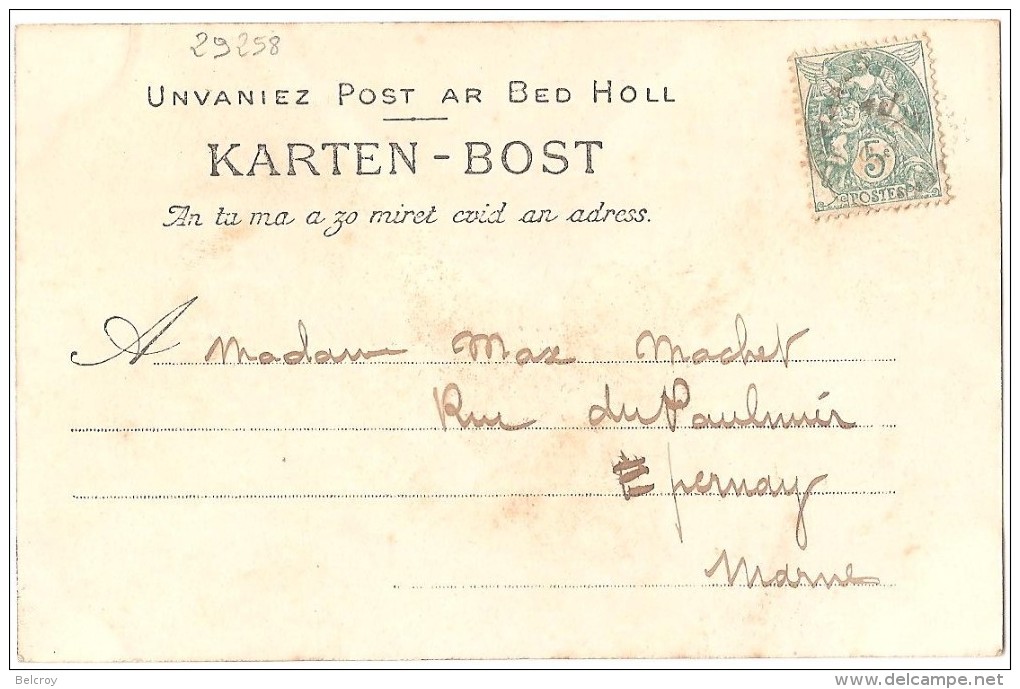 29258
UNVANIEZ POST AR BED HOLL
KARTEN-BOST
An tu ma a zo miret evid an adress.
5c
POSTES
A Madame Max Machet
Rue du Paulmier
Epernay
Marne
Belcroy
www.delcampe.net